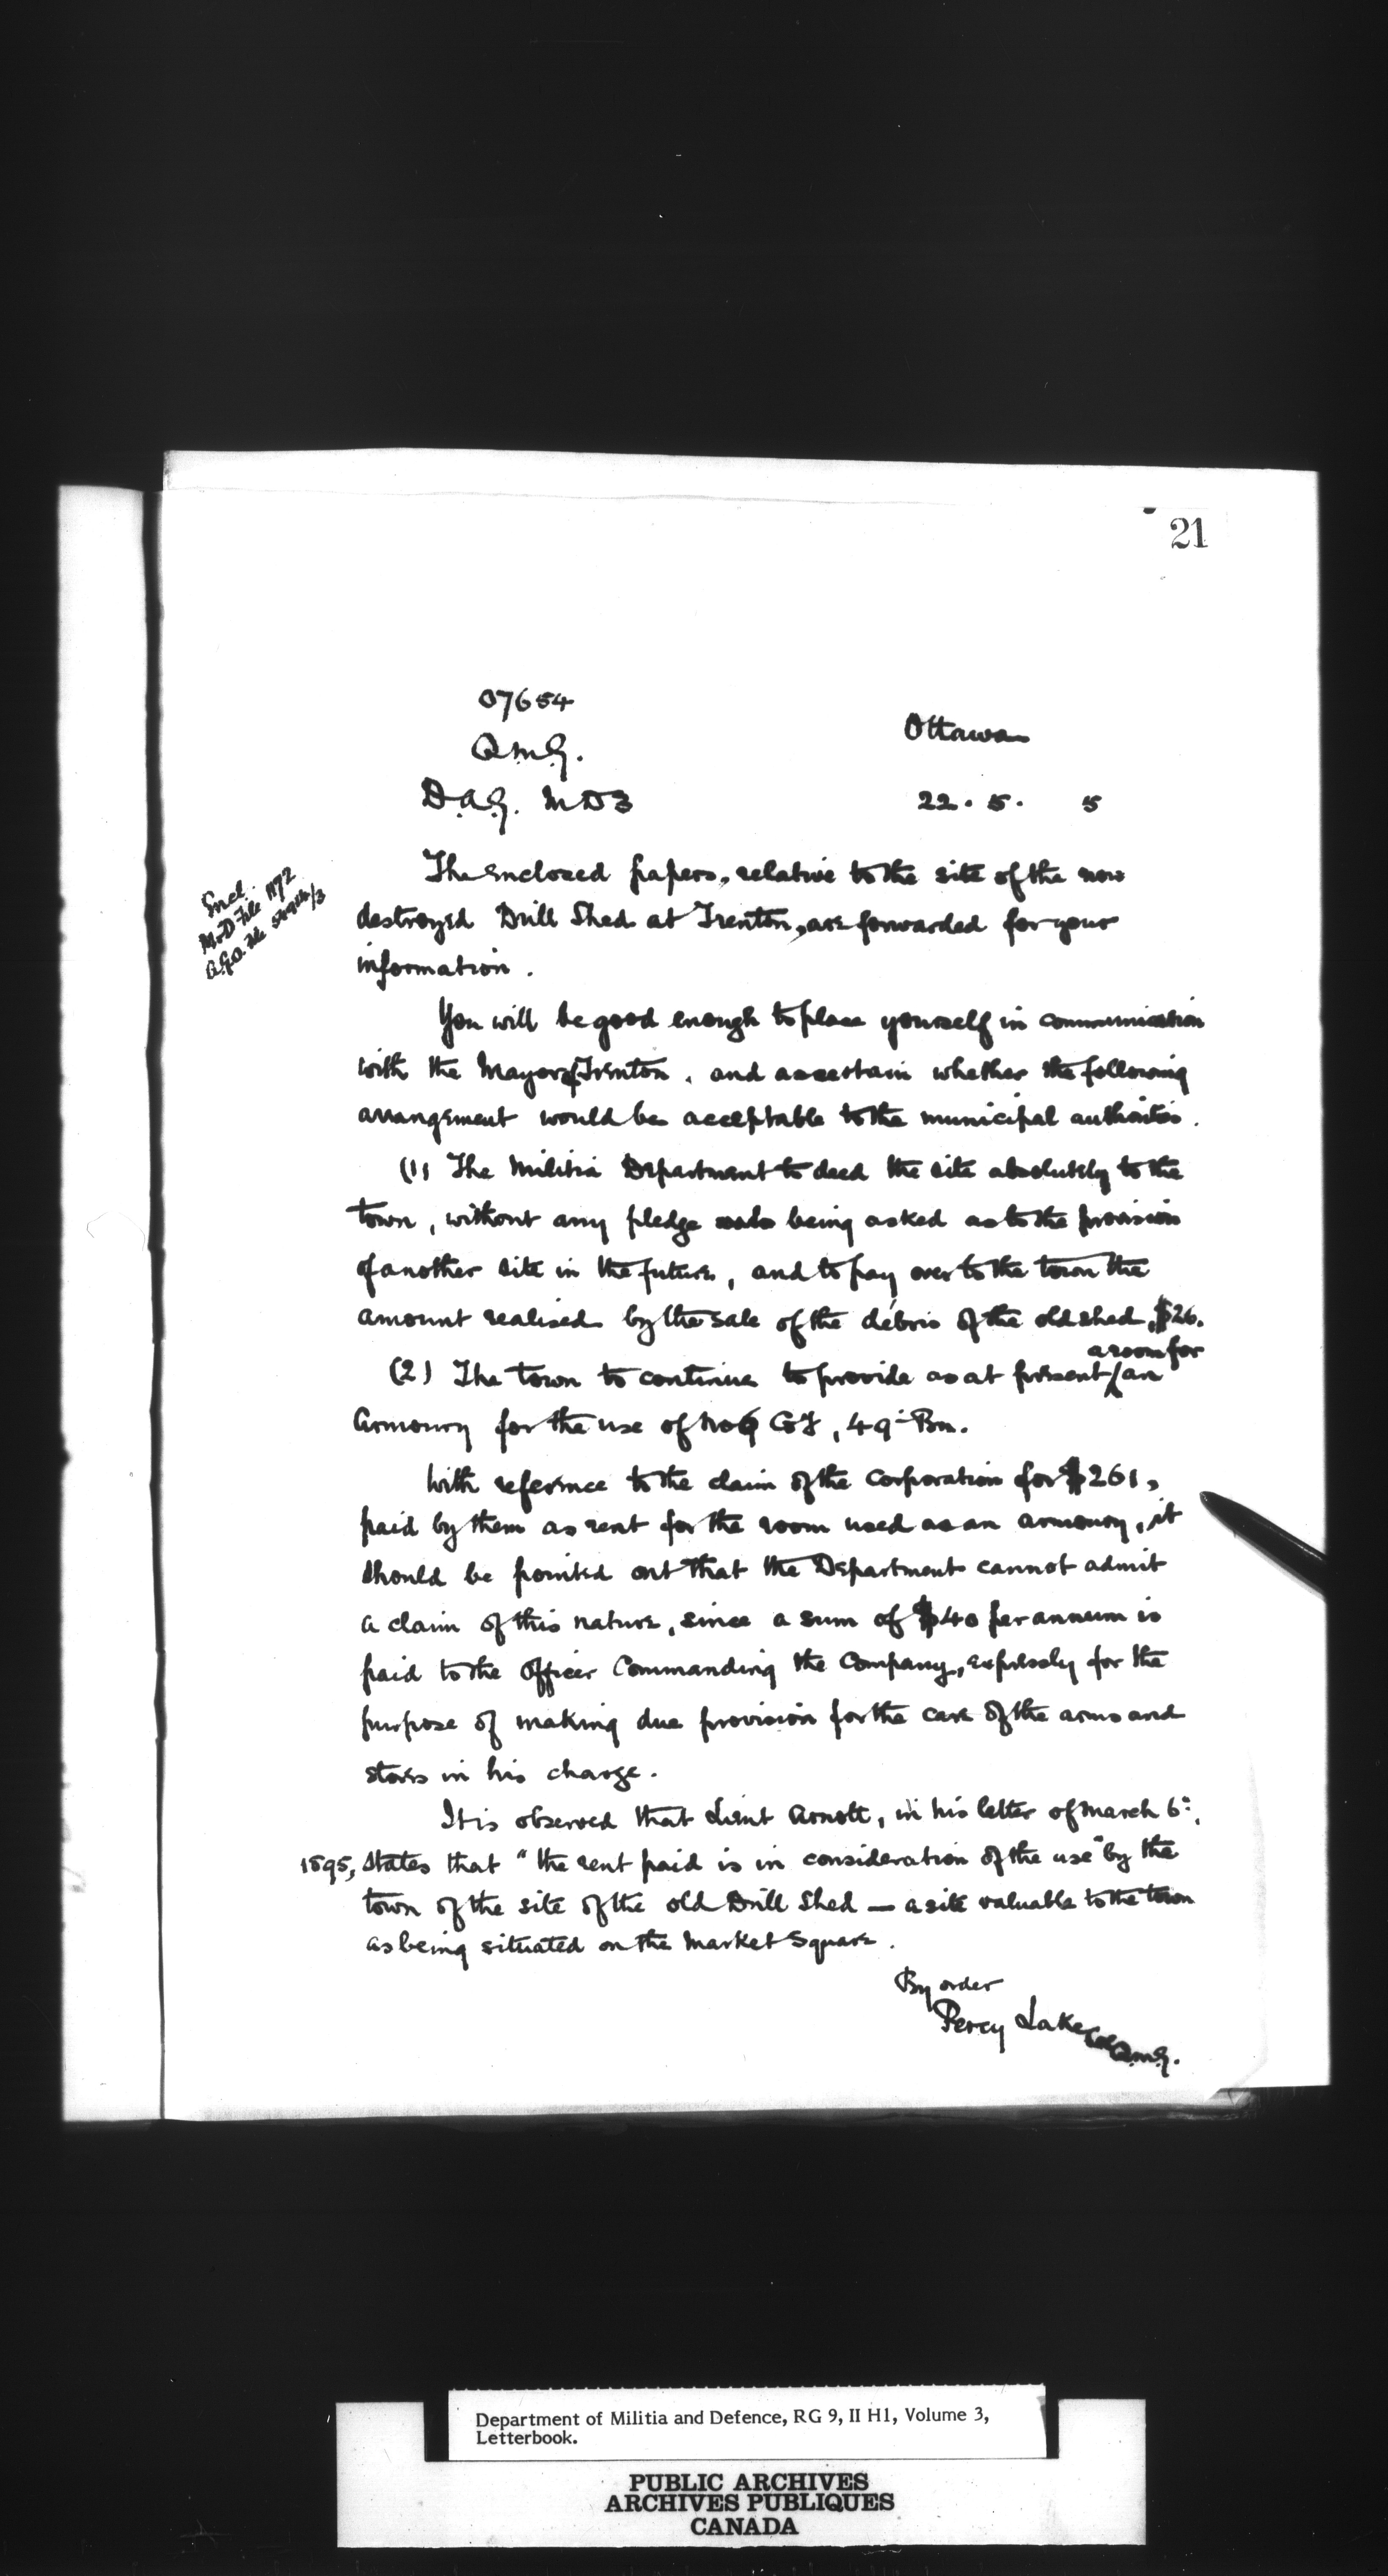 21
07654
Q.M.G.
Ottawa
D.A.G. M D 3
22. 5. 5
Encl.
M&D File 1172
A.G.O. file
The enclosed papers, relative to the site of the now
destroyed Drill Shed at Trenton, are forwarded for your
information.
You will be good enough to place yourself in communication
with the Mayor of Trenton, and ascertain whether the following
arrangement would be acceptable to the municipal authorities.
(1) The Militia Department to deed the site absolutely to the
town, without any pledge being asked as to the provision
of another site in the future, and to pay over to the town the
amount realised by the sale of the débris of the old shed, $26.
a room for
(2) The town to continue to provide as at present / an
Armoury for the use of No 6 Coy, 49th Bn.
With reference to the claim of the Corporation for $261,
paid by them as rent for the room used as an armoury, it
should be pointed out that the Department cannot admit
a claim of this nature, since a sum of $40 per annum is
paid to the Officer Commanding the Company, expressly for the
purpose of making due provision for the care of the arms and
stores in his charge.
It is observed that Lieut Arnott, in his letter of March 6th,
1895, states that "the rent paid is in consideration of the use" by the
town of the site of the old Drill Shed — a site valuable to the town
as being situated on the Market Square.
By order
Percy Lake Col
Q.M.G.
Department of Militia and Defence, RG 9, II H1, Volume 3,
Letterbook.
PUBLIC ARCHIVES
ARCHIVES PUBLIQUES
CANADA